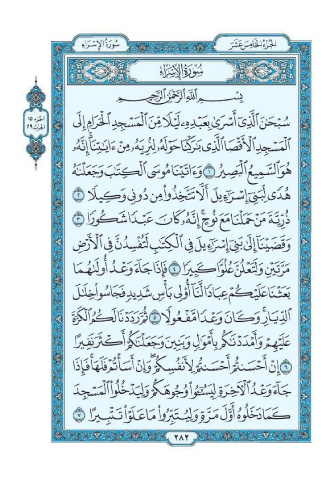 الجزء الخامس عشر
سورة الإسراء
سُورَةُ الإِسْرَاءِ
بِسْمِ اللَّهِ الرَّحْمَٰنِ الرَّحِيمِ
سُبْحَٰنَ الَّذِي أَسْرَىٰ بِعَبْدِهِ لَيْلًا مِّنَ الْمَسْجِدِ الْحَرَامِ إِلَى
الْمَسْجِدِ الْأَقْصَا الَّذِي بَٰرَكْنَا حَوْلَهُ لِنُرِيَهُ مِنْ ءَايَٰتِنَا إِنَّهُ
هُوَ السَّمِيعُ الْبَصِيرُ ١ وَءَاتَيْنَا مُوسَى الْكِتَٰبَ وَجَعَلْنَٰهُ
هُدًى لِّبَنِي إِسْرَٰٓءِيلَ أَلَّا تَتَّخِذُوا مِن دُونِي وَكِيلًا ٢
ذُرِّيَّةَ مَنْ حَمَلْنَا مَعَ نُوحٍ إِنَّهُ كَانَ عَبْدًا شَكُورًا ٣
وَقَضَيْنَا إِلَىٰ بَنِي إِسْرَٰٓءِيلَ فِي الْكِتَٰبِ لَتُفْسِدُنَّ فِي الْأَرْضِ
مَرَّتَيْنِ وَلَتَعْلُنَّ عُلُوًّا كَبِيرًا ٤ فَإِذَا جَاءَ وَعْدُ أُولَىٰهُمَا
بَعَثْنَا عَلَيْكُمْ عِبَادًا لَّنَا أُولِي بَأْسٍ شَدِيدٍ فَجَاسُوا خِلَٰلَ
الدِّيَارِ وَكَانَ وَعْدًا مَّفْعُولًا ٥ ثُمَّ رَدَدْنَا لَكُمُ الْكَرَّةَ
عَلَيْهِمْ وَأَمْدَدْنَٰكُم بِأَمْوَٰلٍ وَبَنِينَ وَجَعَلْنَٰكُمْ أَكْثَرَ نَفِيرًا
٦ إِنْ أَحْسَنتُمْ أَحْسَنتُمْ لِأَنفُسِكُمْ وَإِنْ أَسَأْتُمْ فَلَهَا فَإِذَا
جَاءَ وَعْدُ الْءَاخِرَةِ لِيَسُـُٔوا وُجُوهَكُمْ وَلِيَدْخُلُوا الْمَسْجِدَ
كَمَا دَخَلُوهُ أَوَّلَ مَرَّةٍ وَلِيُتَبِّرُوا مَا عَلَوْا تَتْبِيرًا ٧
٢٨٢